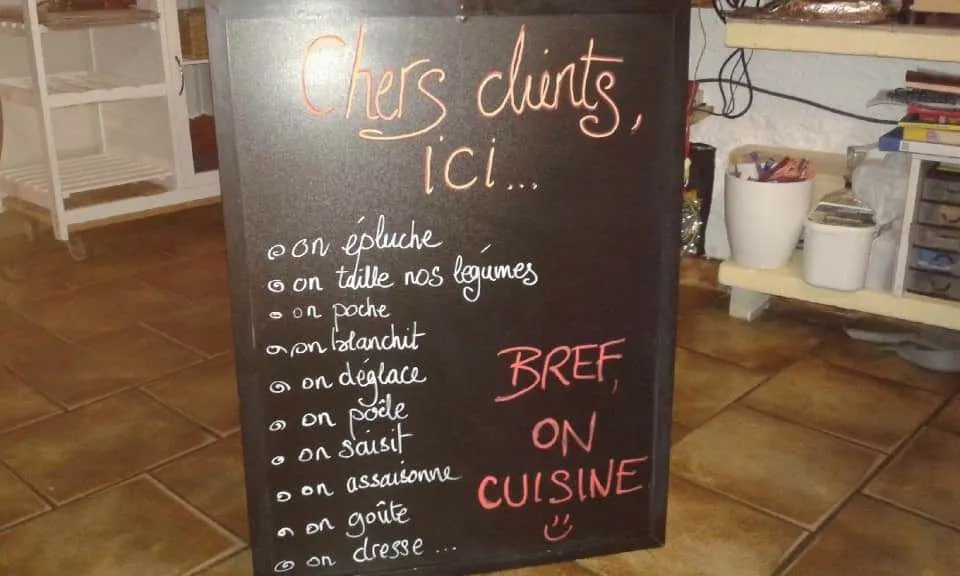 Chers clients,
ici...
on épluche
on taille nos légumes
on poche
on blanchit
on déglace
on poêle
on saisit
on assaisonne
on goûte
on dresse...
BREF,
ON
CUISINE